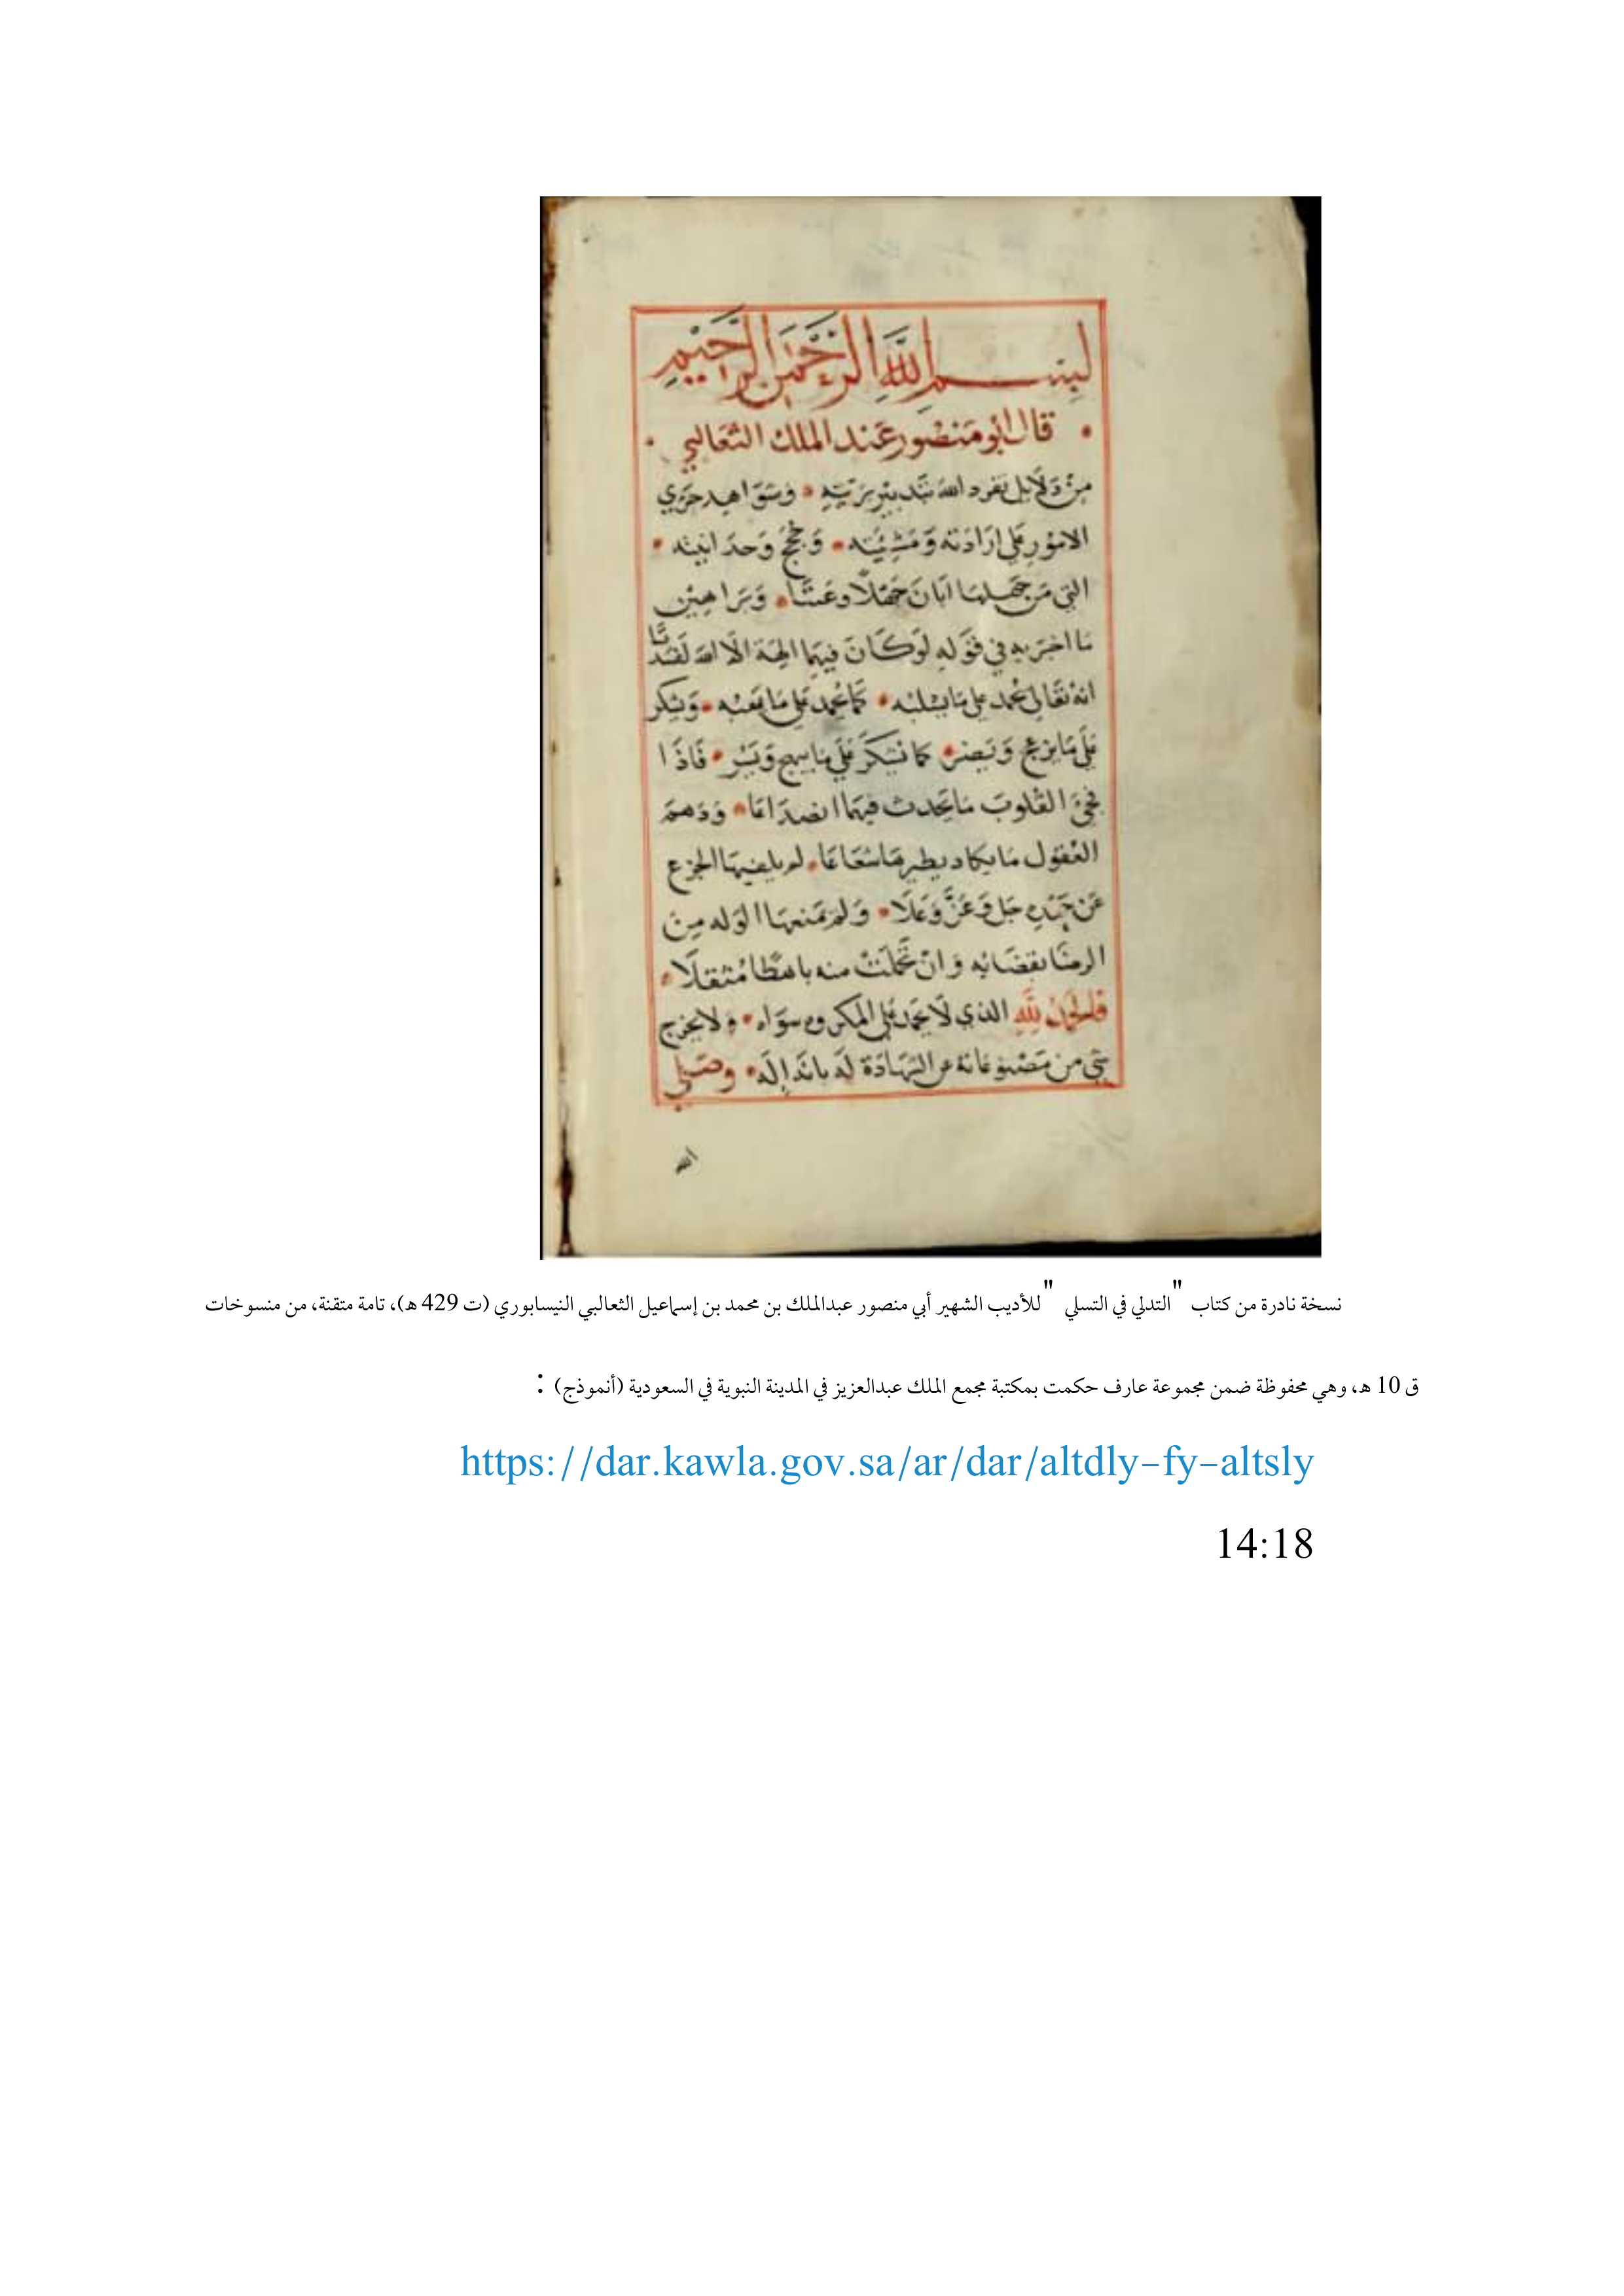 بِسْمِ اللَّهِ الرَّحْمٰنِ الرَّحِيمِ
قال ابو مَنصُور عَبد الملك الثعَالبي
مِنْ دَلَايل تفرد الله بتدبير بَرِيَّتِهِ وَشوَاهِد جَرْي
الامُوْرِ عَلى ارَادَته وَمَشِيَّته وَحُجَجُ وَحدَانيته
التي مَن جَهلهَا ابَانَ جَهْلًا وعَتا وَبَرَاهِيْن
مَا اخبَرَ بِهِ في قَوْلهِ لَوْ كَانَ فيهمَا الِهَة الّا الله لَفَسَدَتَا
انهُ تعَالىٰ يحمد على مَا يسْلبُه كمَا يحُمد عَلى مَا يَهَبُه وَيشكر
عَلَى مَا يزعج وَيَضر كما يُشكَرَ عَلَى مَا يبهج وَيَسُر فَاذَا
فجئ القلوبَ مَا يَحدث فيهَا انصدَاعًا وَدَهمَ
العُقول مَا يكاد يطيرهَا شعَاعَا لم يلفهَا الجزع
عَن حَمْدِهِ جَل وَعَزَّ وَعَلَا وَلم يمنعهَا الوَله مِن
الرضَا بقضَائه وَانْ تحَمَّلَتْ منه باهظًا مُثقلًا
فلله الحمد الذي لَا يُحْمَد عَلى المكروه سوَاه ولا يخرج
شئ من مَصْنوعَاته عن الشهَادَة لَه بانه إلَه وصَلى
الله
نسخة نادرة من كتاب "التدلي في التسلي" للأديب الشهير أبي منصور عبدالملك بن محمد بن إسماعيل الثعالبي النيسابوري (ت 429 هـ)، تامة متقنة، من منسوخات
ق 10 هـ، وهي محفوظة ضمن مجموعة عارف حكمت بمكتبة مجمع الملك عبدالعزيز في المدينة النبوية في السعودية (أنموذج) :
https://dar.kawla.gov.sa/ar/dar/altdly-fy-altsly
14:18